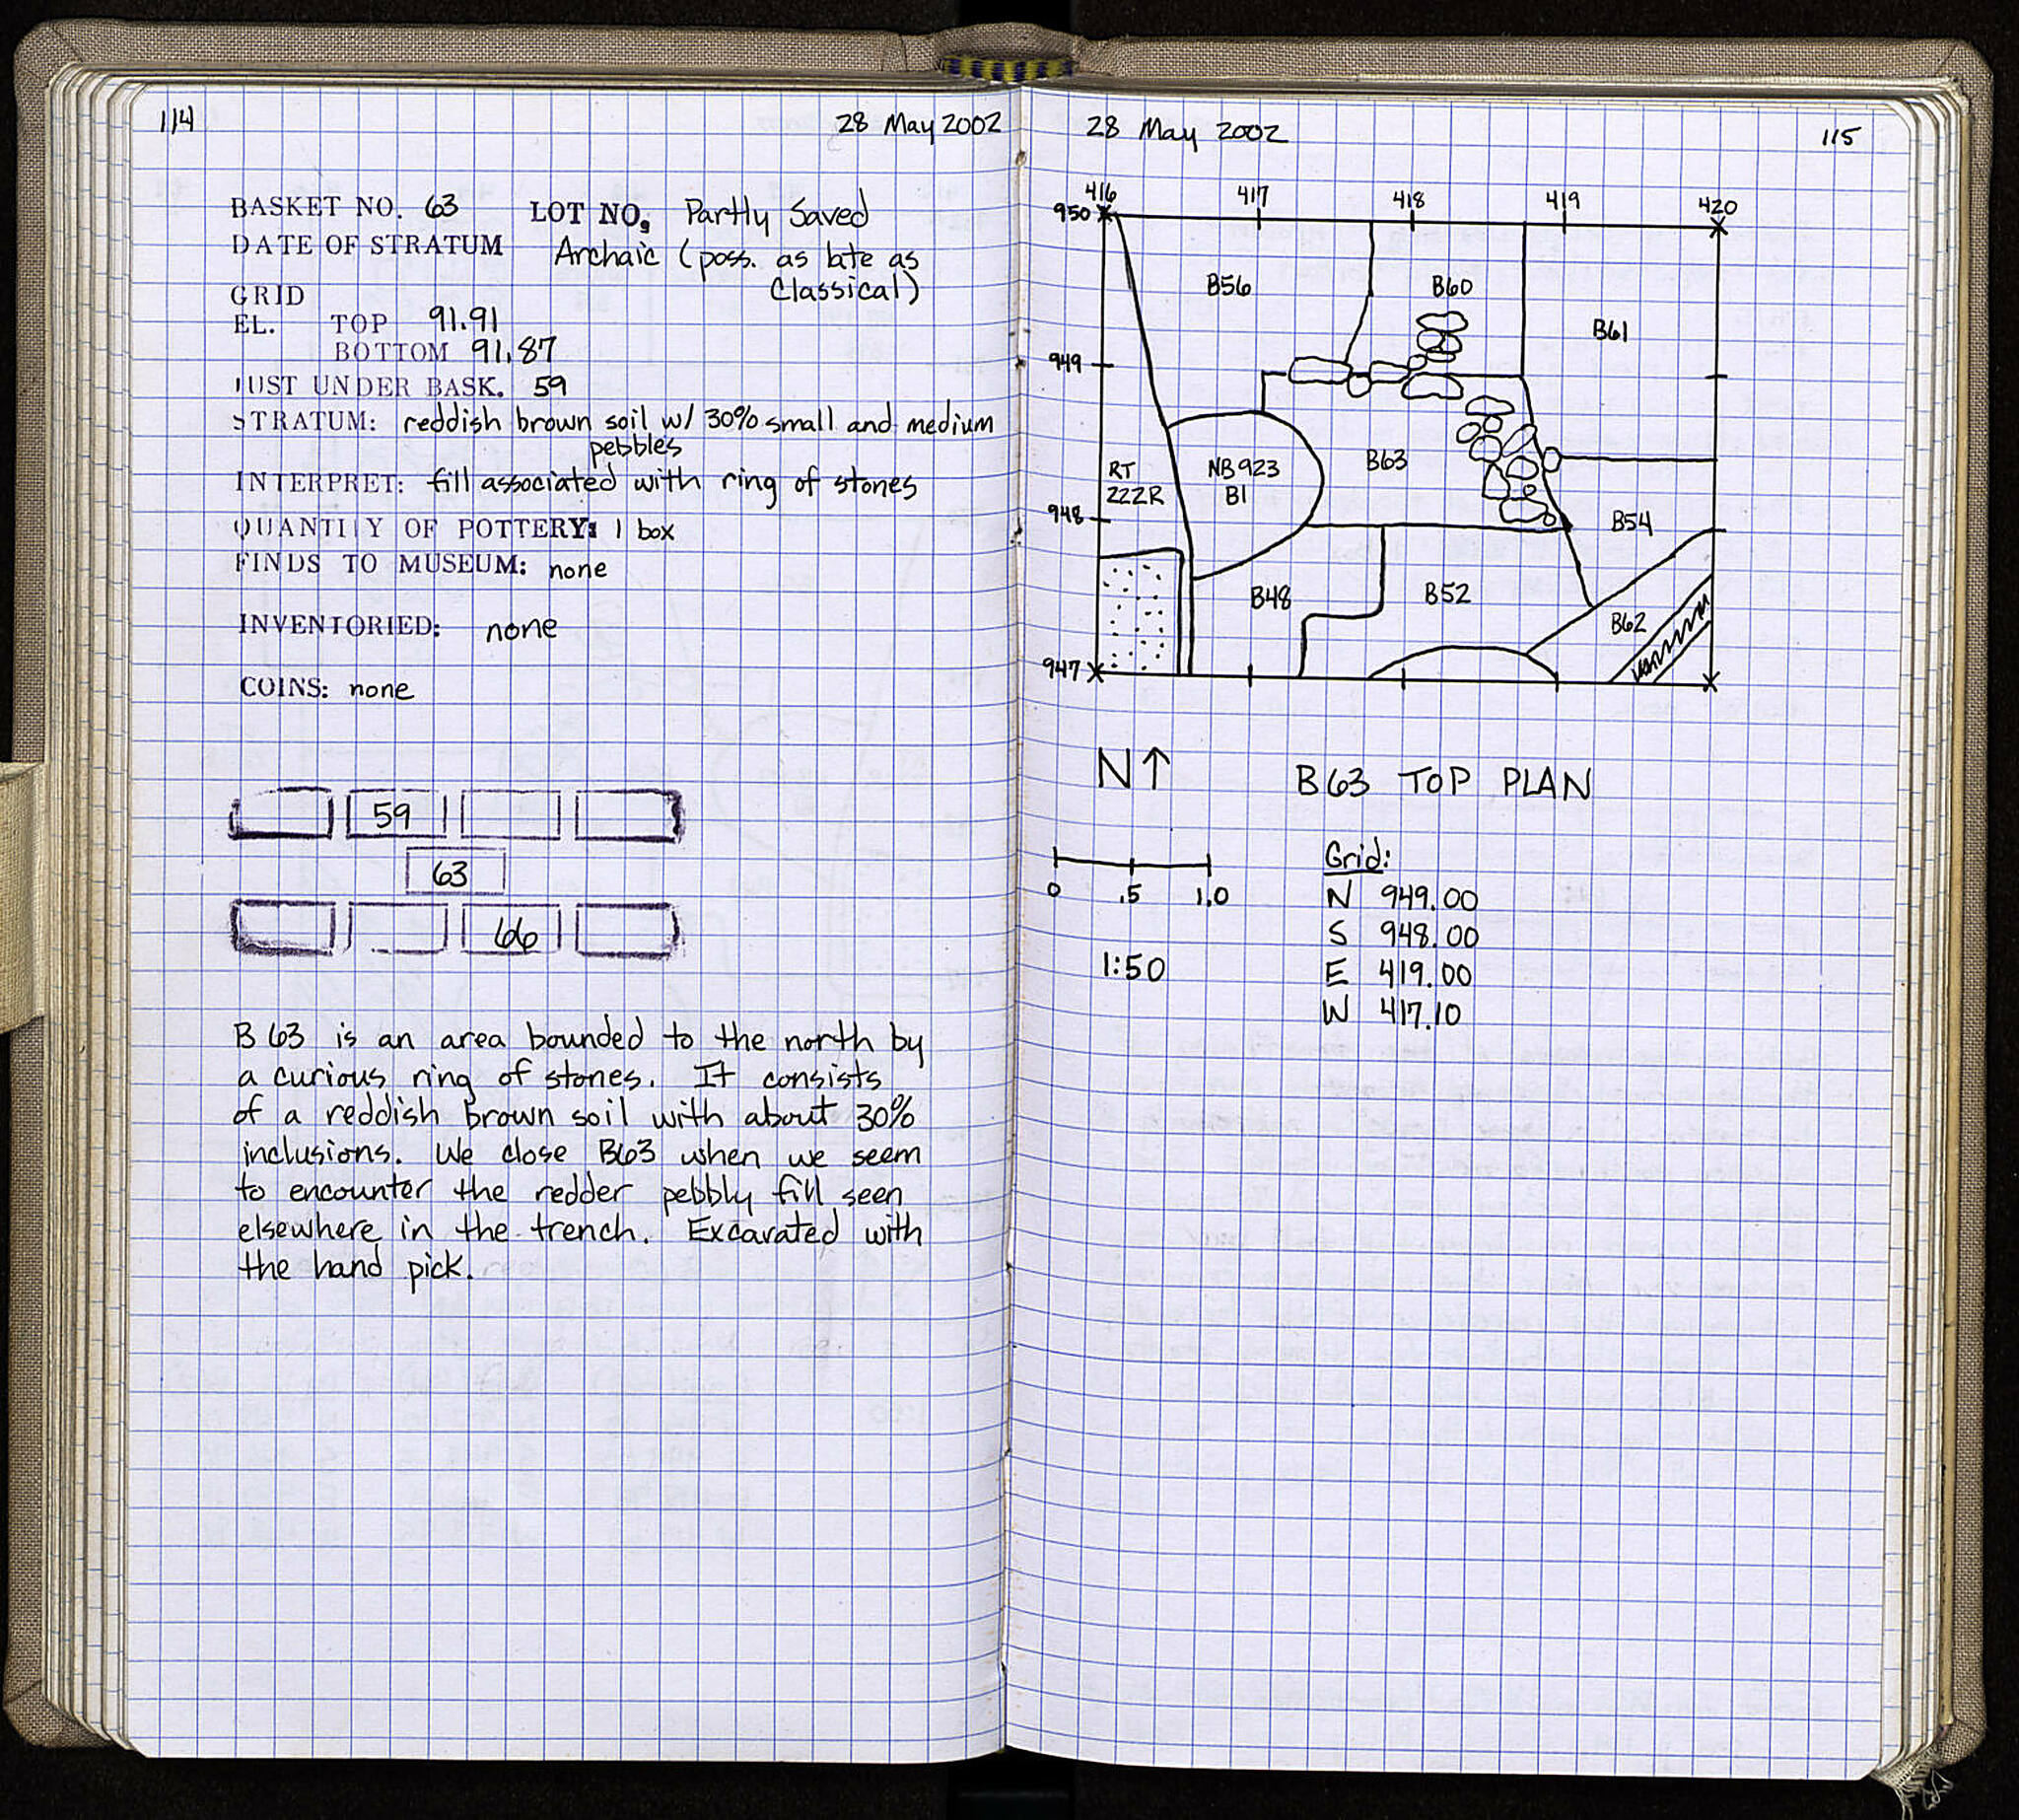 114
28 May 2002
BASKET NO. 63 LOT NO. Partly Saved
DATE OF STRATUM Archaic (poss. as late as
Classical)
GRID
EL. TOP 91.91
BOTTOM 91.87
JUST UNDER BASK. 59
STRATUM: reddish brown soil w/ 30% small and medium
pebbles
INTERPRET: fill associated with ring of stones
QUANTITY OF POTTERY: 1 box
FINDS TO MUSEUM: none
INVENTORIED: none
COINS: none
59
63
66
B 63 is an area bounded to the north by
a curious ring of stones. It consists
of a reddish brown soil with about 30%
inclusions. We close B63 when we seem
to encounter the redder pebbly fill seen
elsewhere in the trench. Excavated with
the hand pick.
28 May 2002
115
416 417 418 419 420
950
B56 B60
B61
949
RT
222R
NB923
B1
B63
948
B54
B48 B52
B62
947
N↑ B63 TOP PLAN
0 .5 1.0
1:50
Grid:
N 949.00
S 948.00
E 419.00
W 417.10